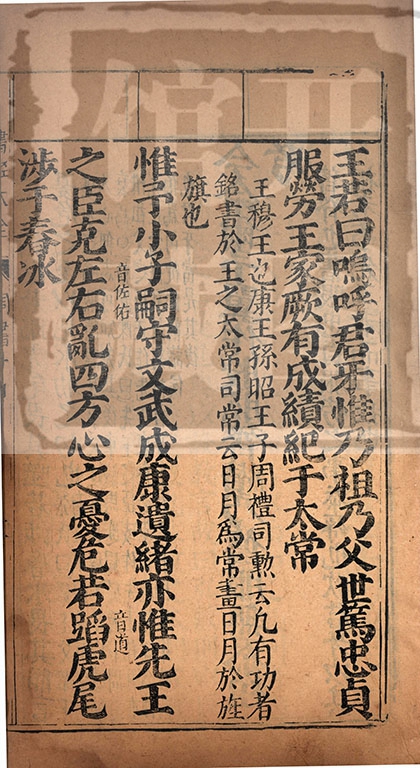 王若曰嗚呼君牙惟乃祖乃父世篤忠貞
服勞王家厥有成績紀于太常
王穆王也康王孫昭王子周禮司勳云凡有功者
銘書於王之太常司常云日月為常畫日月於旌
旗也
惟予小子嗣守文武成康遺緒亦惟先王
之臣克左右亂四方心之憂危若蹈虎尾
音佐佑
音道
涉于春冰